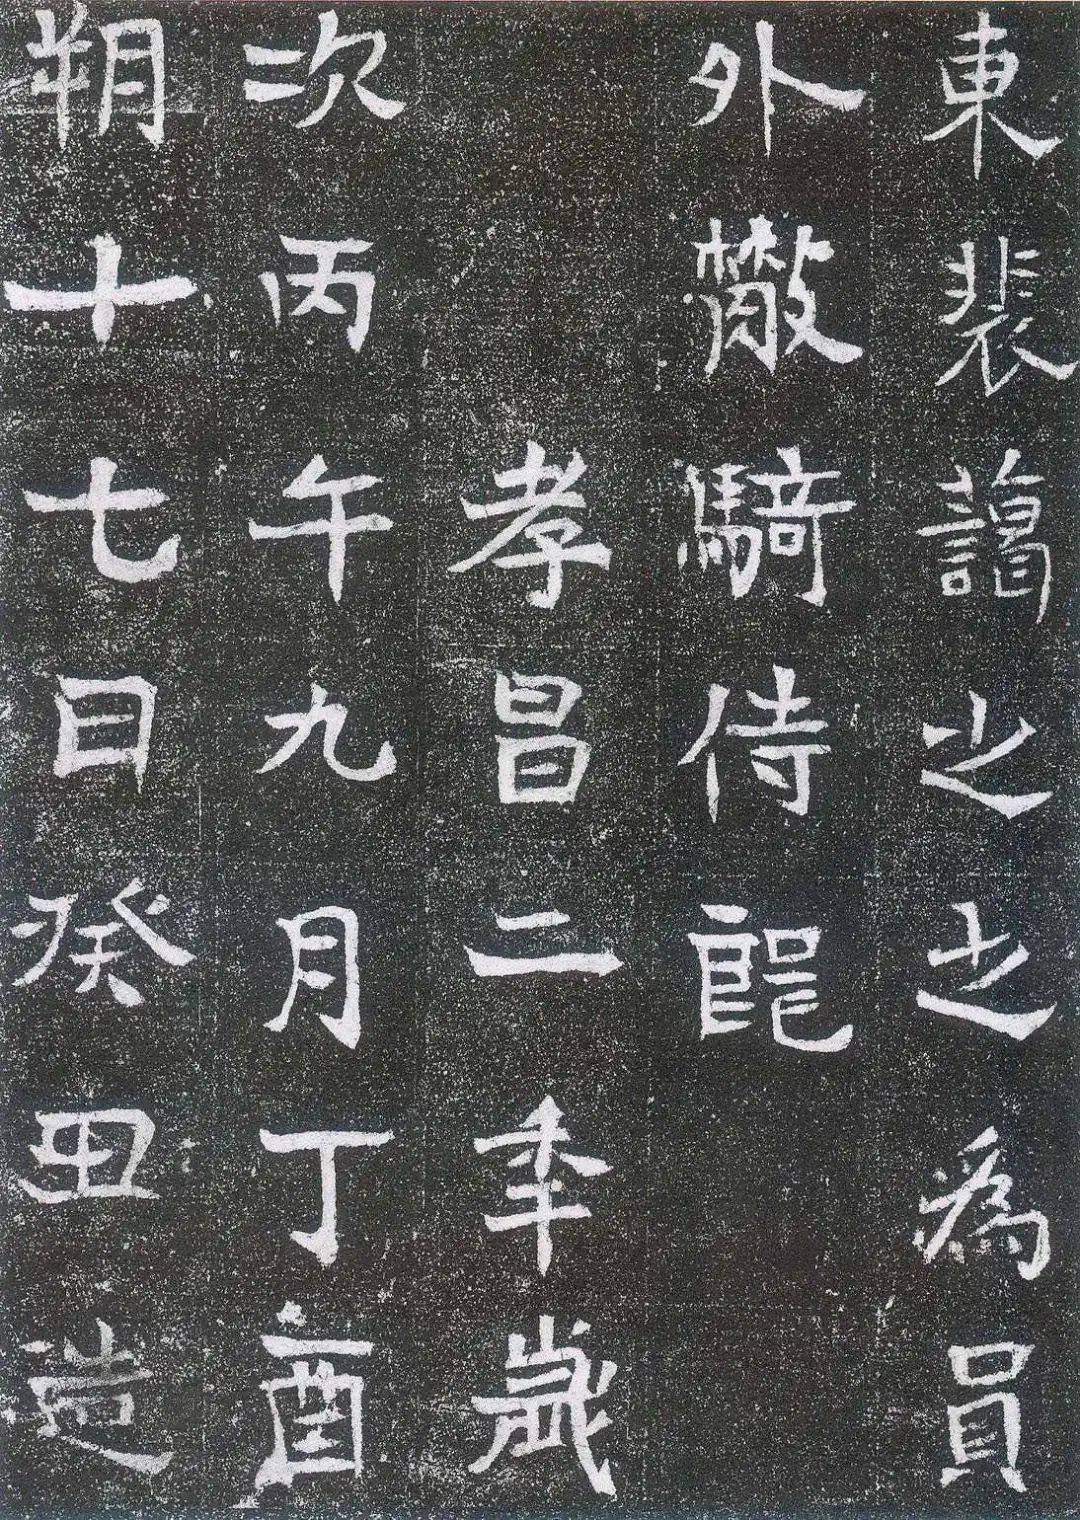 東裴藹之之為員
外散騎侍郎
孝昌二年歲
次丙午九月丁酉
朔十七日癸丑造